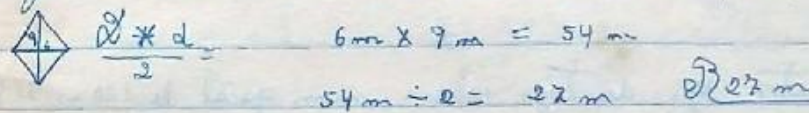 D * d / 2 = 6 m × 9 m = 54 m
54 m ÷ 2 = 27 m R 27 m